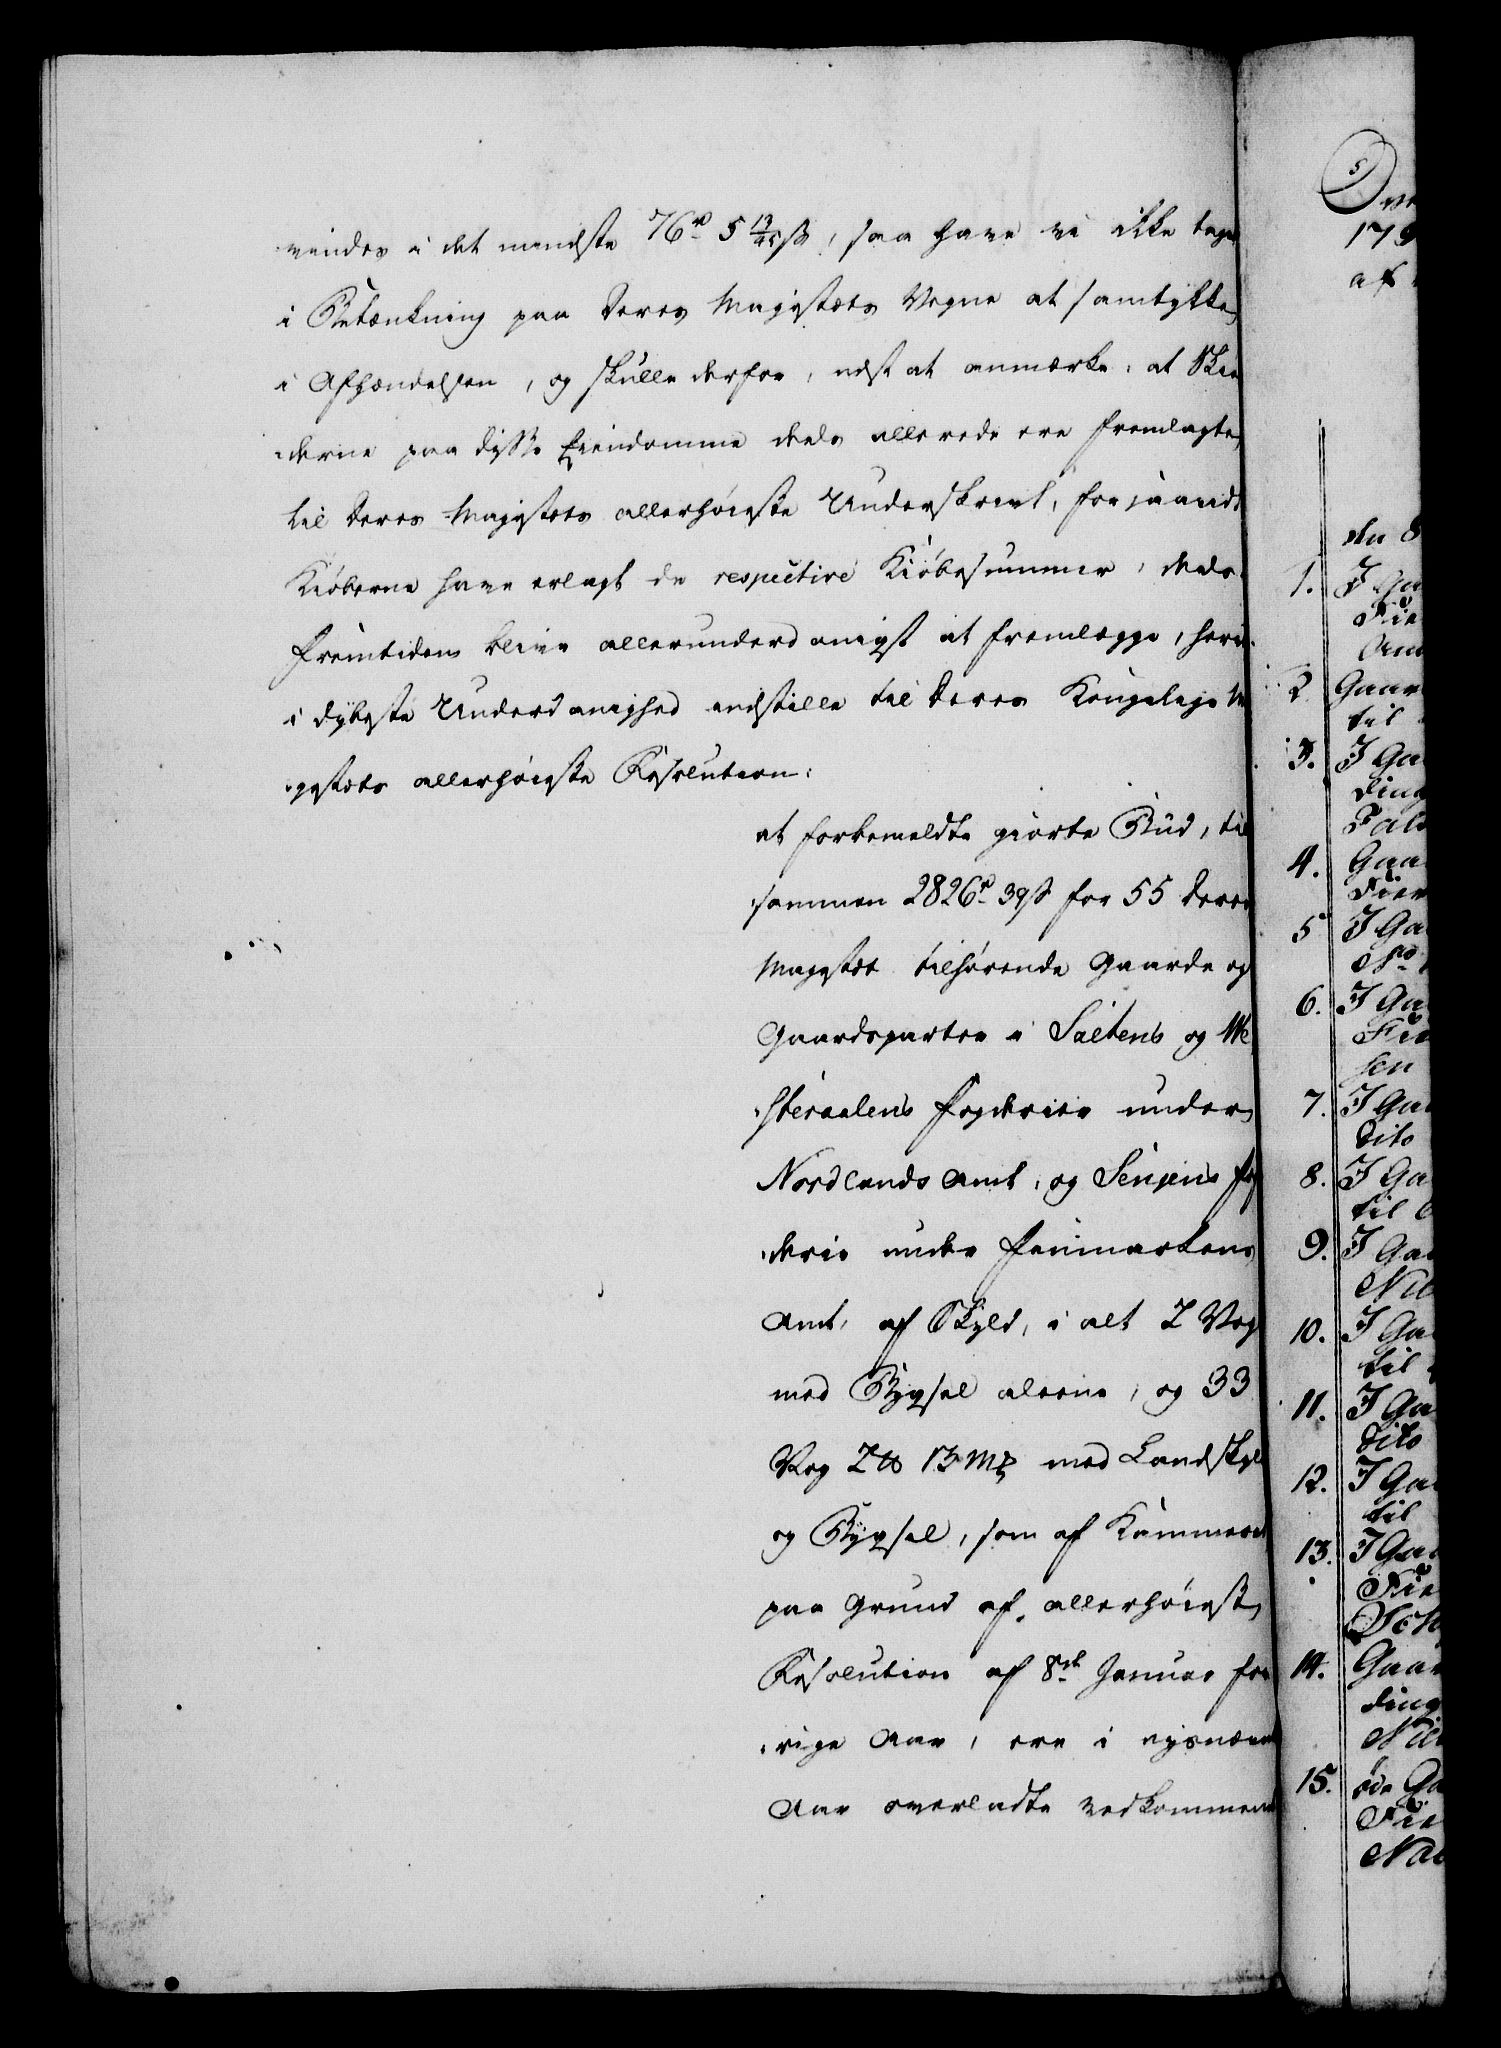 vindes i det mindste 76rd 5 13/45 s, saa have vi ikke tag
i Betænkning paa Deres Majestæts Vegne at samtykke
i Afhændelsen, og skulle derfor, næst at anmærke, at Skiø
derne paa disse Eiendomme deels allerede ere fremlagte
til Deres Majestæts allerhøieste Underskrivt, forsaavidt
Kiøberne have erlagt de respective Kiøbesummer, deels
fremtidens blive allerunderdanigst at fremlægge, her
i dybeste Underdanighed indstille til Deres Kongelige M
jestæts allerhøieste Resolution:
at forbemeldte giorte Bud, til
sammen 2826rd 39s for 55 Deres
Majestæt tilhørende Gaarde og
Gaardsparter i Saltens og We
steraalens Fogderier under
Nordlands Amt, og Senjens Fog
derie under Finmarkens
Amt, af Skyld, i alt 2 Vog
med Bygsel alene, og 33
Vog 2 ℔ 13 Mk med Landskyld
og Bygsel, som af Kammeret
paa Grund af allerhøieste
Resolution af 8de Januar for
rige Aar, ere i nysnævnt
Aar overladte vedkommend
5
179
af
den 8
1. I Ga
Fie
2 Gaar
til
3. I Ga
ding
4. Gaa
Fier
5 I Ga
No
6. I Ga
Fie
sen
7. I Ga
dito
8. I Ga
til
9. I Ga
Nie
10. I Ga
til
11. I Ga
dito
12. I Ga
til
13. I Ga
Fie
14. Gaar
ding
Nie
15. øde Ga
Fie